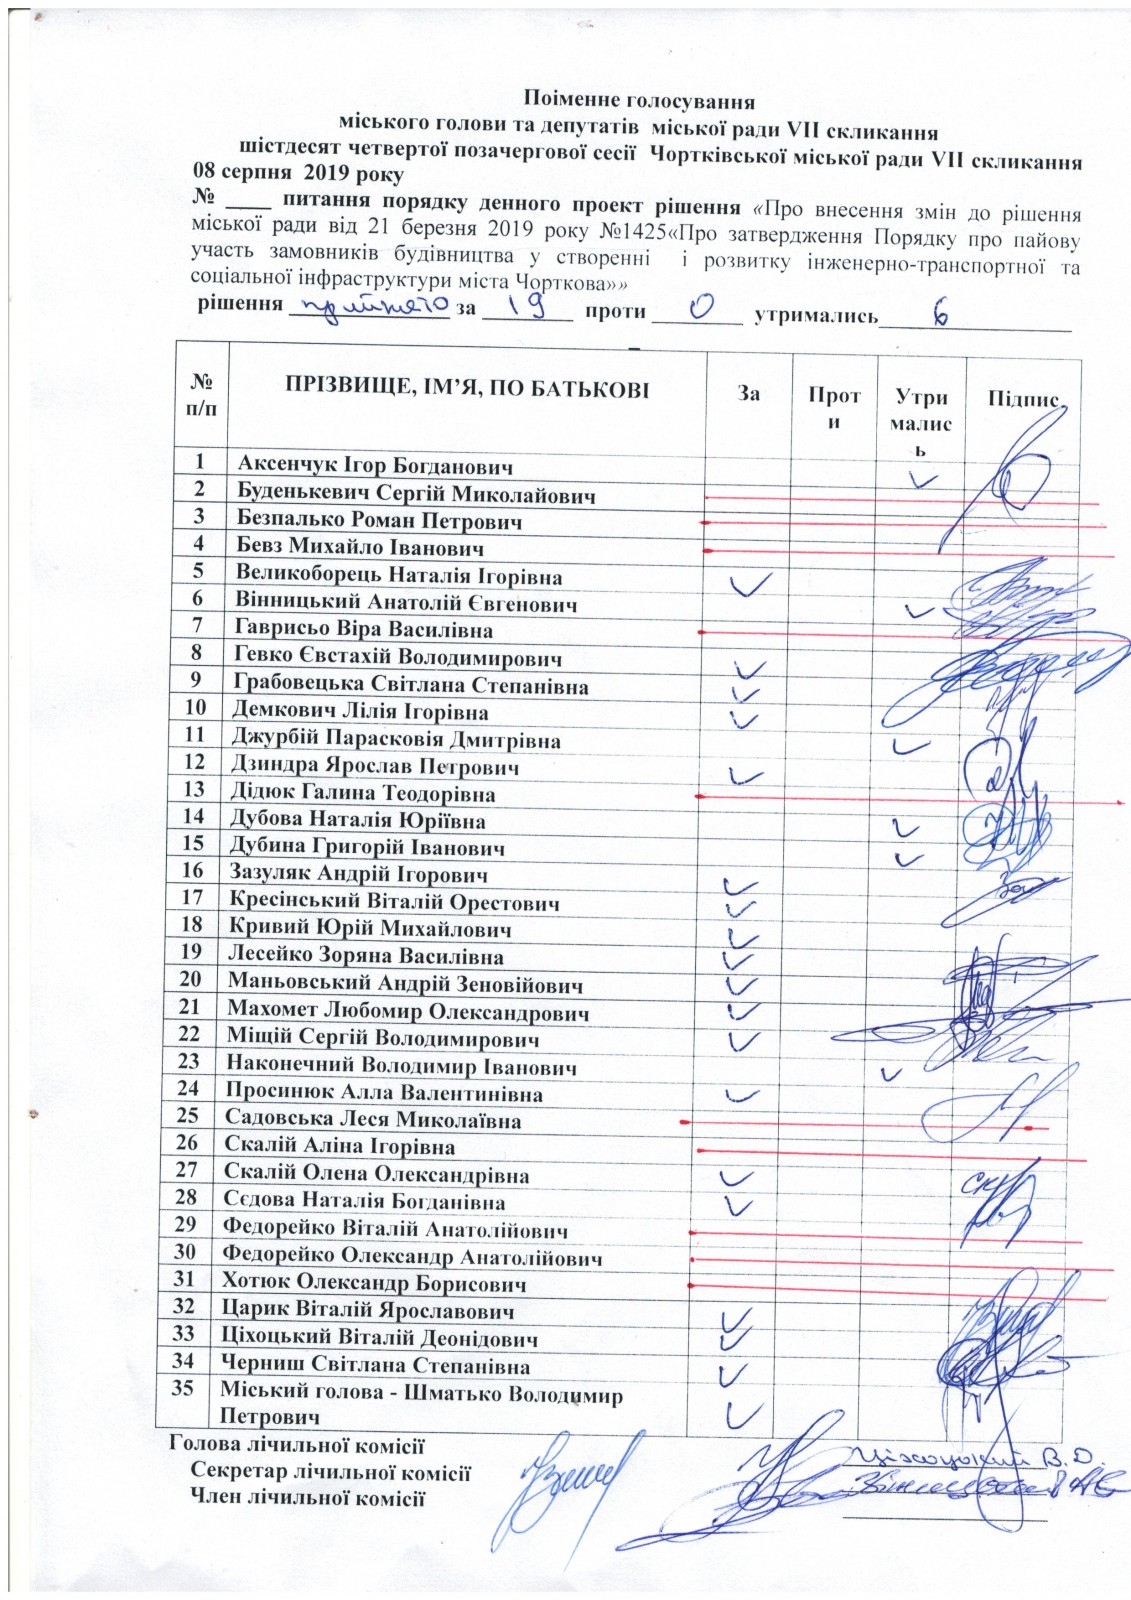 Поіменне голосування
міського голови та депутатів міської ради VII скликання
шістдесят четвертої позачергової сесії Чортківської міської ради VII скликання
08 серпня 2019 року
№ ____ питання порядку денного проект рішення «Про внесення змін до рішення
міської ради від 21 березня 2019 року №1425«Про затвердження Порядку про пайову
участь замовників будівництва у створенні і розвитку інженерно-транспортної та
соціальної інфраструктури міста Чорткова»»
рішення прийнято за 19 проти 0 утримались 6
№ п/п ПРІЗВИЩЕ, ІМ’Я, ПО БАТЬКОВІ За Проти Утримались Підпис
1 Аксенчук Ігор Богданович
2 Буденькевич Сергій Миколайович
3 Безпалько Роман Петрович
4 Бевз Михайло Іванович
5 Великоборець Наталія Ігорівна
6 Вінницький Анатолій Євгенович
7 Гаврисьо Віра Василівна
8 Гевко Євстахій Володимирович
9 Грабовецька Світлана Степанівна
10 Демкович Лілія Ігорівна
11 Джурбій Парасковія Дмитрівна
12 Дзиндра Ярослав Петрович
13 Дідюк Галина Теодорівна
14 Дубова Наталія Юріївна
15 Дубина Григорій Іванович
16 Зазуляк Андрій Ігорович
17 Кресінський Віталій Орестович
18 Кривий Юрій Михайлович
19 Лесейко Зоряна Василівна
20 Маньовський Андрій Зеновійович
21 Махомет Любомир Олександрович
22 Міщій Сергій Володимирович
23 Наконечний Володимир Іванович
24 Просинюк Алла Валентинівна
25 Садовська Леся Миколаївна
26 Скалій Аліна Ігорівна
27 Скалій Олена Олександрівна
28 Сєдова Наталія Богданівна
29 Федорейко Віталій Анатолійович
30 Федорейко Олександр Анатолійович
31 Хотюк Олександр Борисович
32 Царик Віталій Ярославович
33 Ціхоцький Віталій Деонідович
34 Черниш Світлана Степанівна
35 Міський голова - Шматько Володимир
Петрович
Голова лічильної комісії Ціхоцький В.Д.
Секретар лічильної комісії
Член лічильної комісії